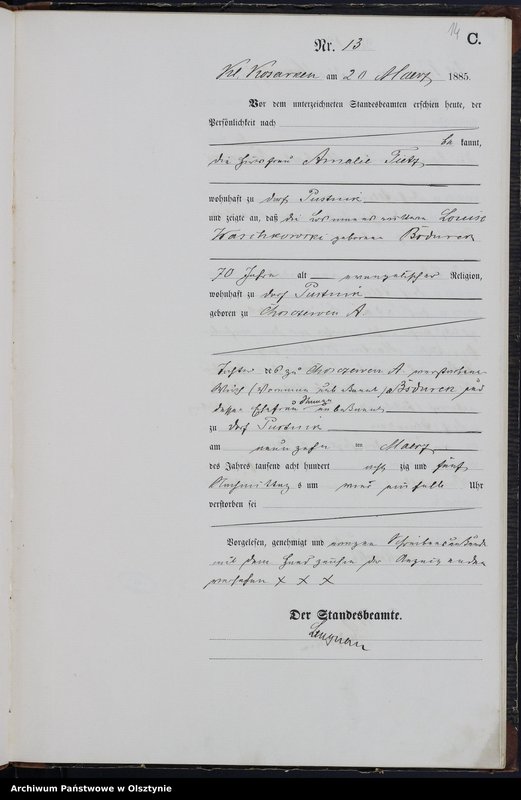 14
C.
Nr. 13
Kl. Kosarken am 20 Maerz 1885.
Vor dem unterzeichneten Standesbeamten erschien heute, der
Persönlichkeit nach
be kannt,
die Amalie Tietz
wohnhaft zu dorf Pustnik
und zeigte an, daß die Louise
geborene
70 Jahre alt evangelischer Religion,
wohnhaft zu dorf Pustnik
geboren zu Choszewen A.
Tochter des zu Choszewen A. verstorbenen
und
dessen Ehefrau unbekannt
zu dorf Pustnik
am neunzehn ten Maerz
des Jahres tausend acht hundert acht zig und fünf
Nachmittag s um ein halb Uhr
verstorben sei
Vorgelesen, genehmigt und wegen
mit dem Handzeichen der
versehen x x x
Der Standesbeamte.
Archiwum Państwowe w Olsztynie